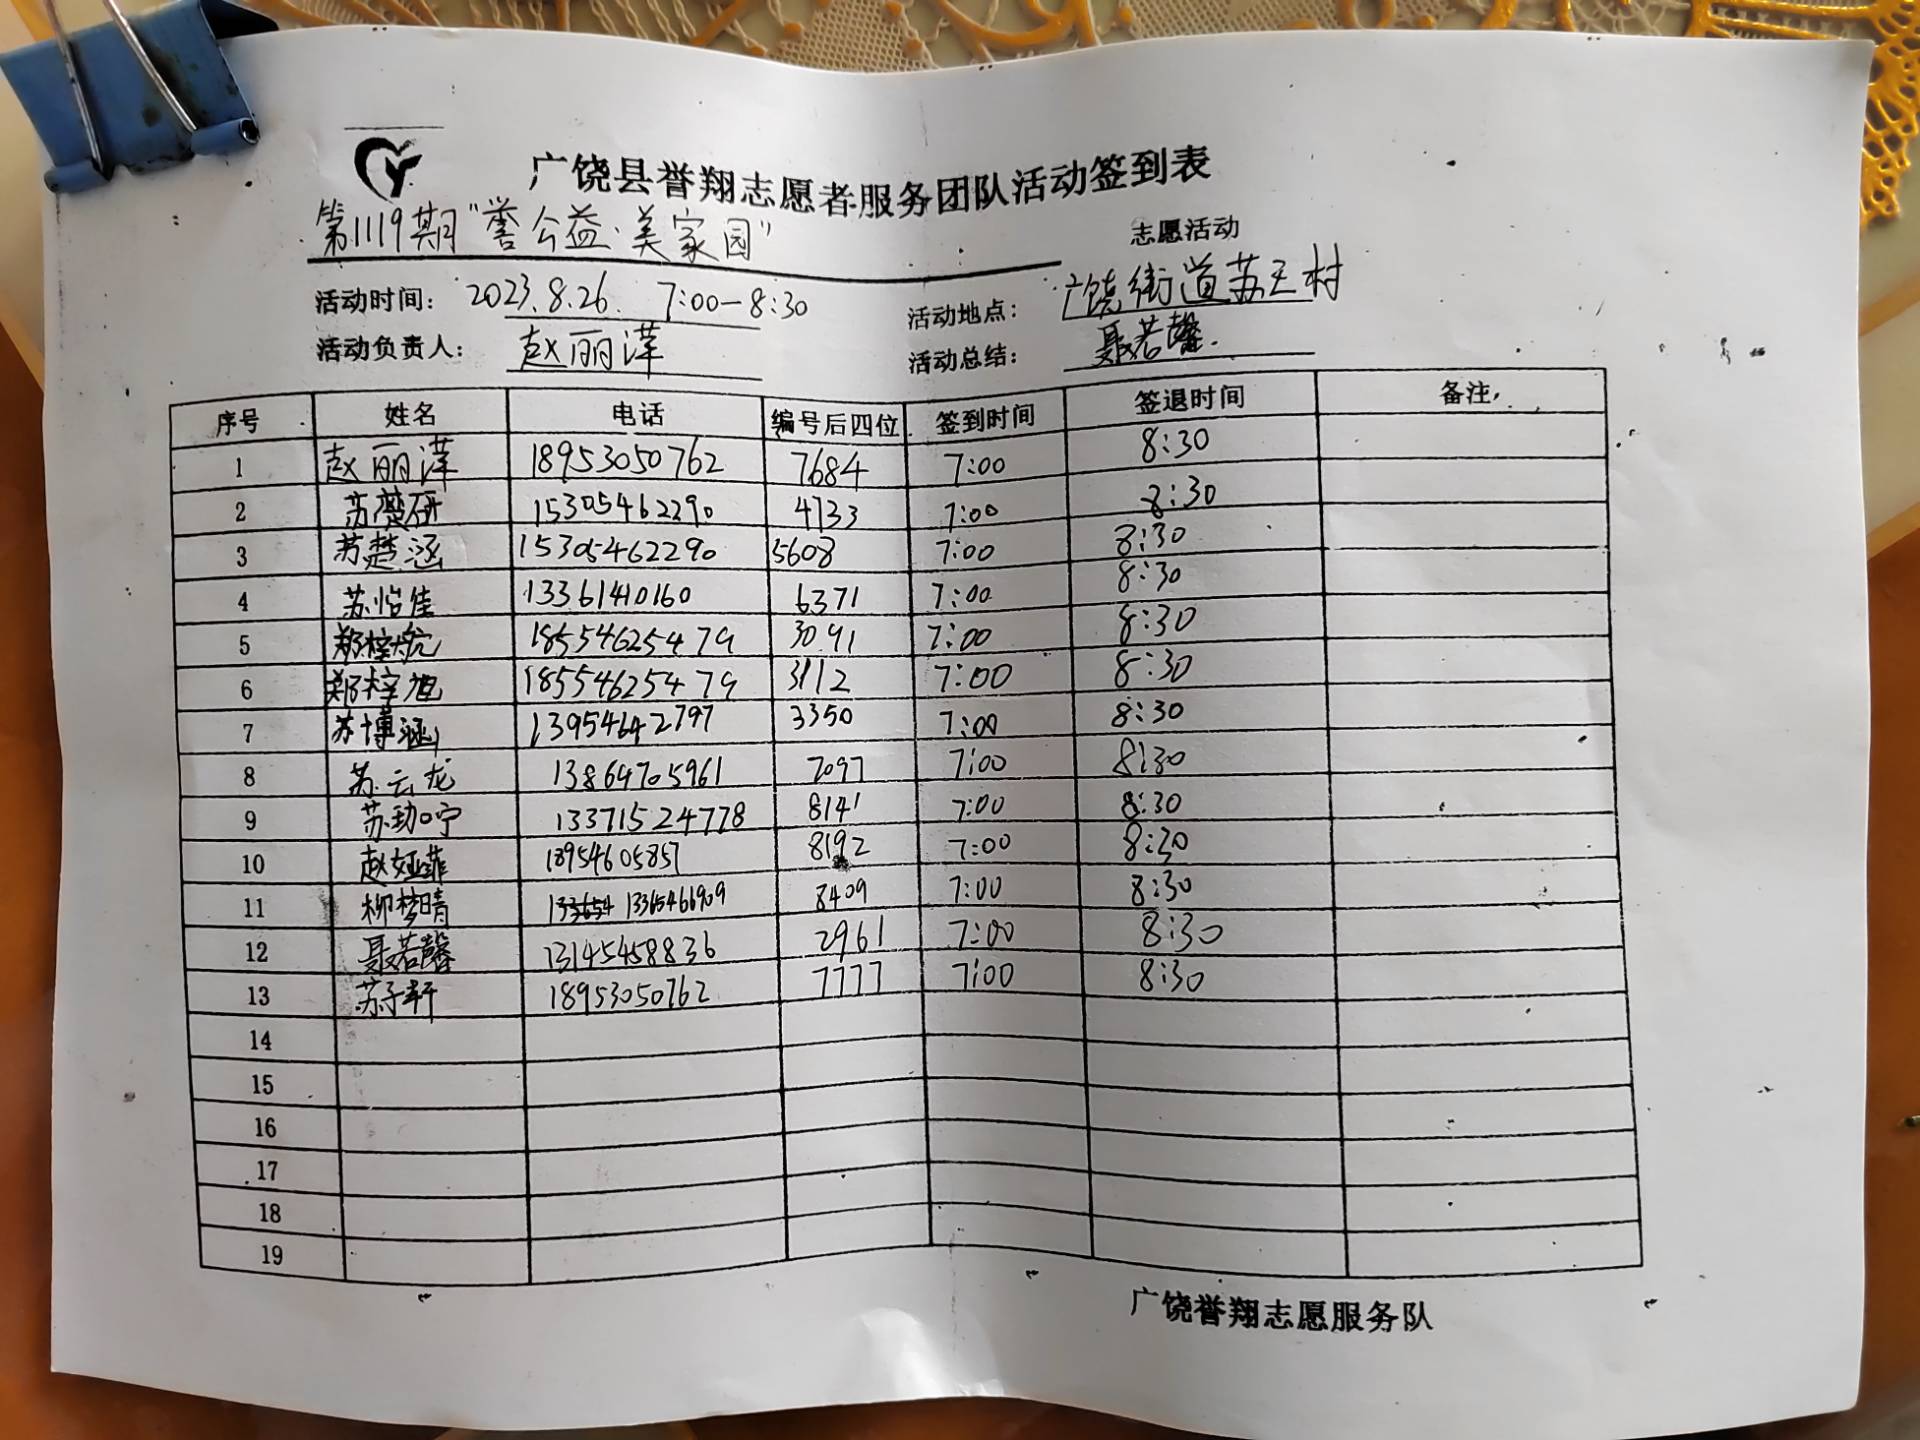 广饶县誉翔志愿者服务团队活动签到表
第1119期"誉公益·美家园" 志愿活动
活动时间: 2023.8.26. 7:00-8:30 活动地点: 广饶街道苏王村
活动负责人: 赵丽萍 活动总结: 聂若馨.
序号 姓名 电话 编号后四位 签到时间 签退时间 备注
1 赵丽萍 18953050762 7684 7:00 8:30
2 苏楚研 15305462290 4733 7:00 8:30
3 苏楚涵 15305462290 5608 7:00 8:30
4 苏怡佳 13361410160 6371 7:00 8:30
5 郑梓航 18554625479 3091 7:00 8:30
6 郑梓旭 18554625479 3112 7:00 8:30
7 苏博涵 13954642797 3350 7:00 8:30
8 苏云龙 13864705961 7097 7:00 8:30
9 13371524778 8141 7:00 8:30
10 赵娅菲 18954605857 8192 7:00 8:30
11 柳梦晴 13365466909 8409 7:00 8:30
12 聂若馨 13145458836 2961 7:00 8:30
13 苏子轩 18953050762 7777 7:00 8:30
14
15
16
17
18
19
广饶誉翔志愿服务队